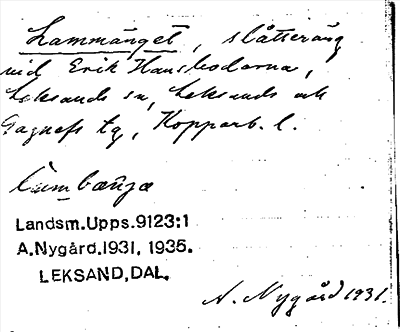 Lammänget, slåtteräng
vid Erik Hansbodarna,
Leksands sn, Leksands och
Gagnefs tg, Kopparb. l.
Landsm.Upps.9123:1
A.Nygård.1931, 1935.
LEKSAND, DAL.
A. Nygård 1931.